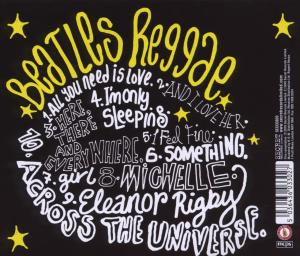 BEATLES REGGAE
1. ALL YOU NEED IS LOVE.
2. AND I LOVE HER.
3. HERE, THERE AND EVERYWHERE.
4. I'M ONLY SLEEPING
5. I Feel Fine.
6. SOMETHING.
7. girl
8. MICHELLE
9. Eleanor Rigby
10. ACROSS THE UNIVERSE.
mcps